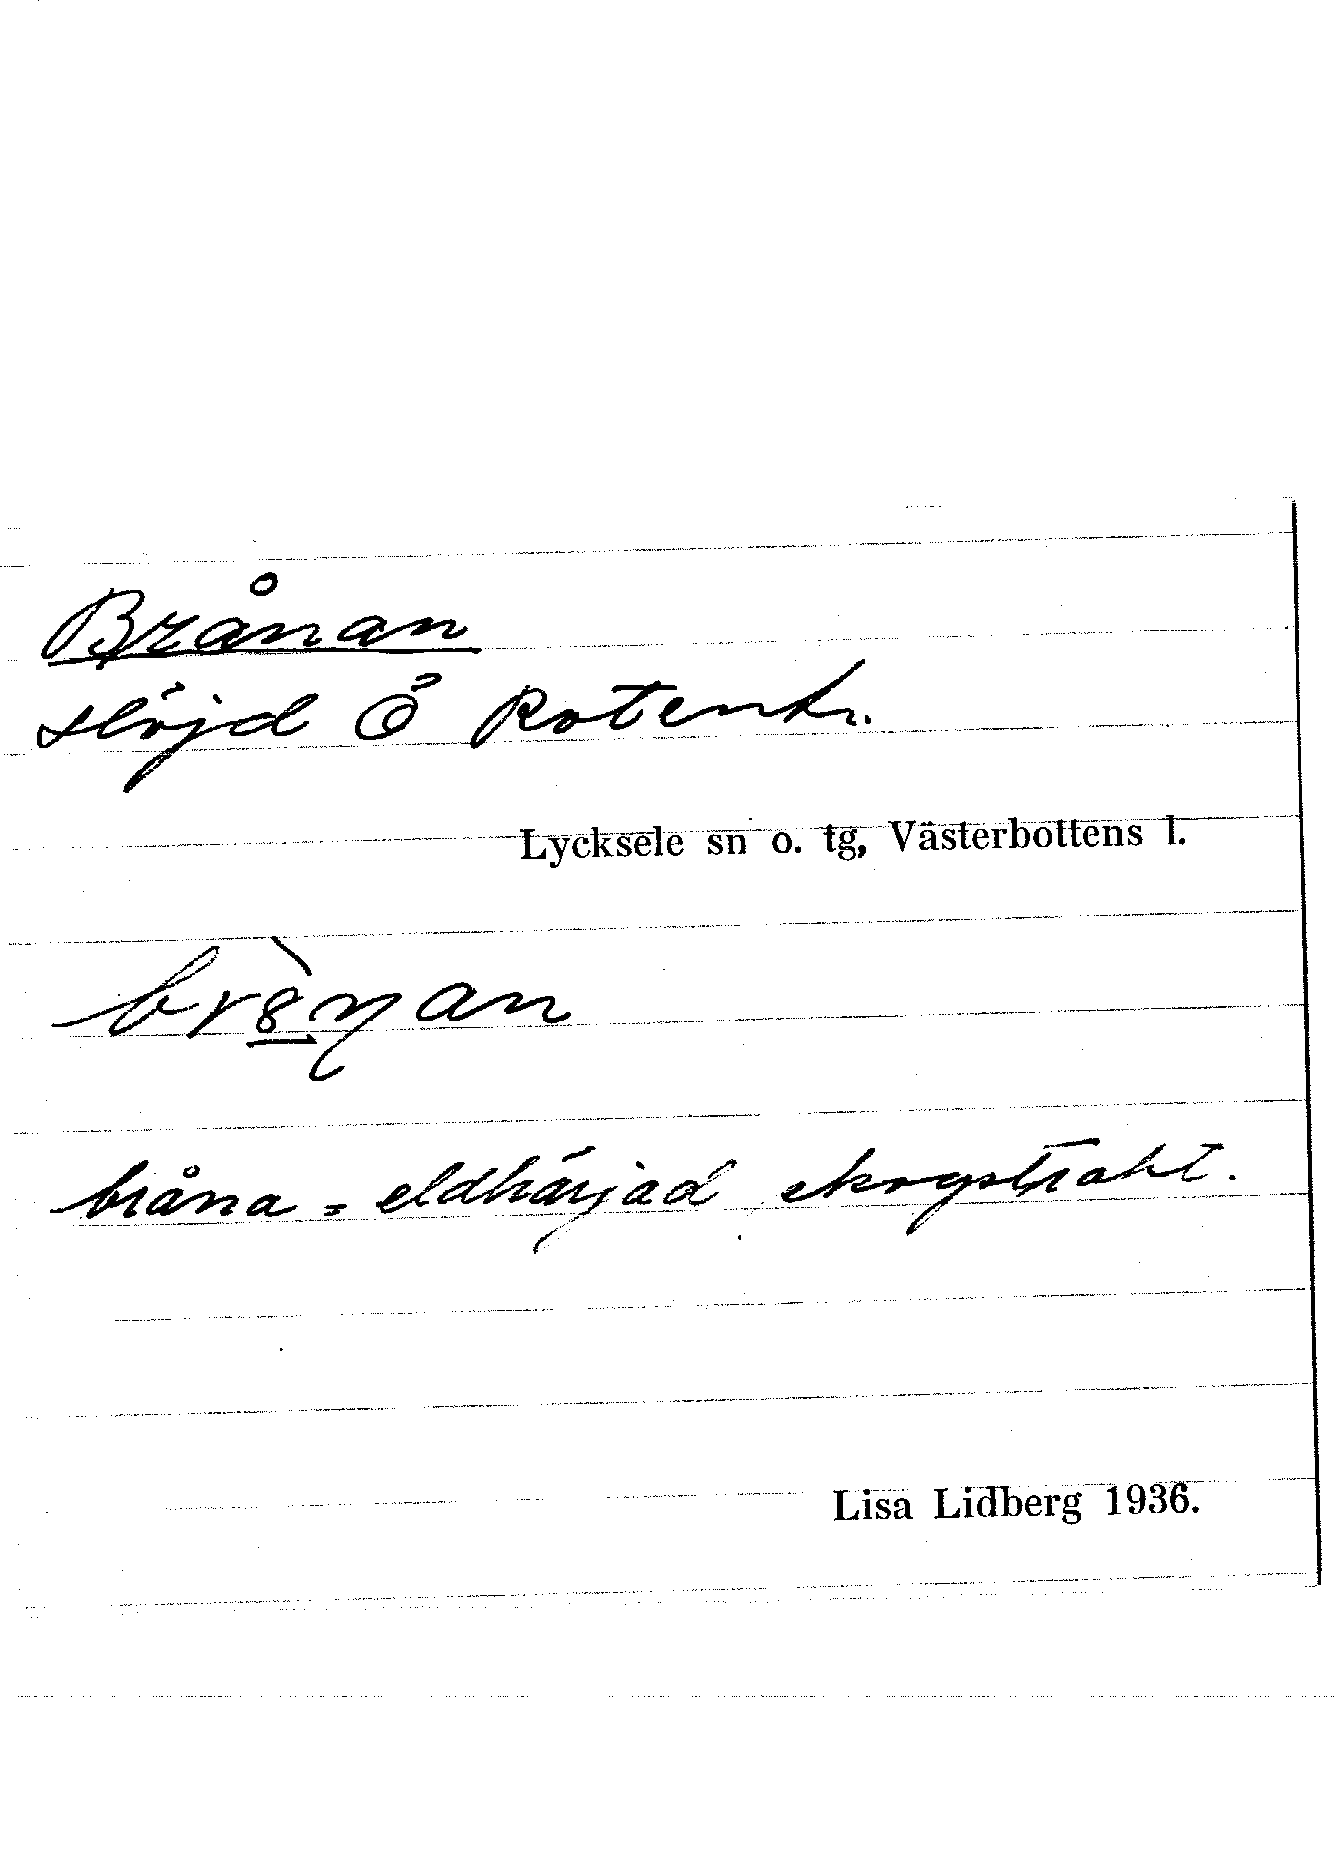 Brånan
slöjd Ö Rotentr.
Lycksele sn o. tg, Västerbottens l.
bråna = eldhärjad skogstrakt.
Lisa Lidberg 1936.